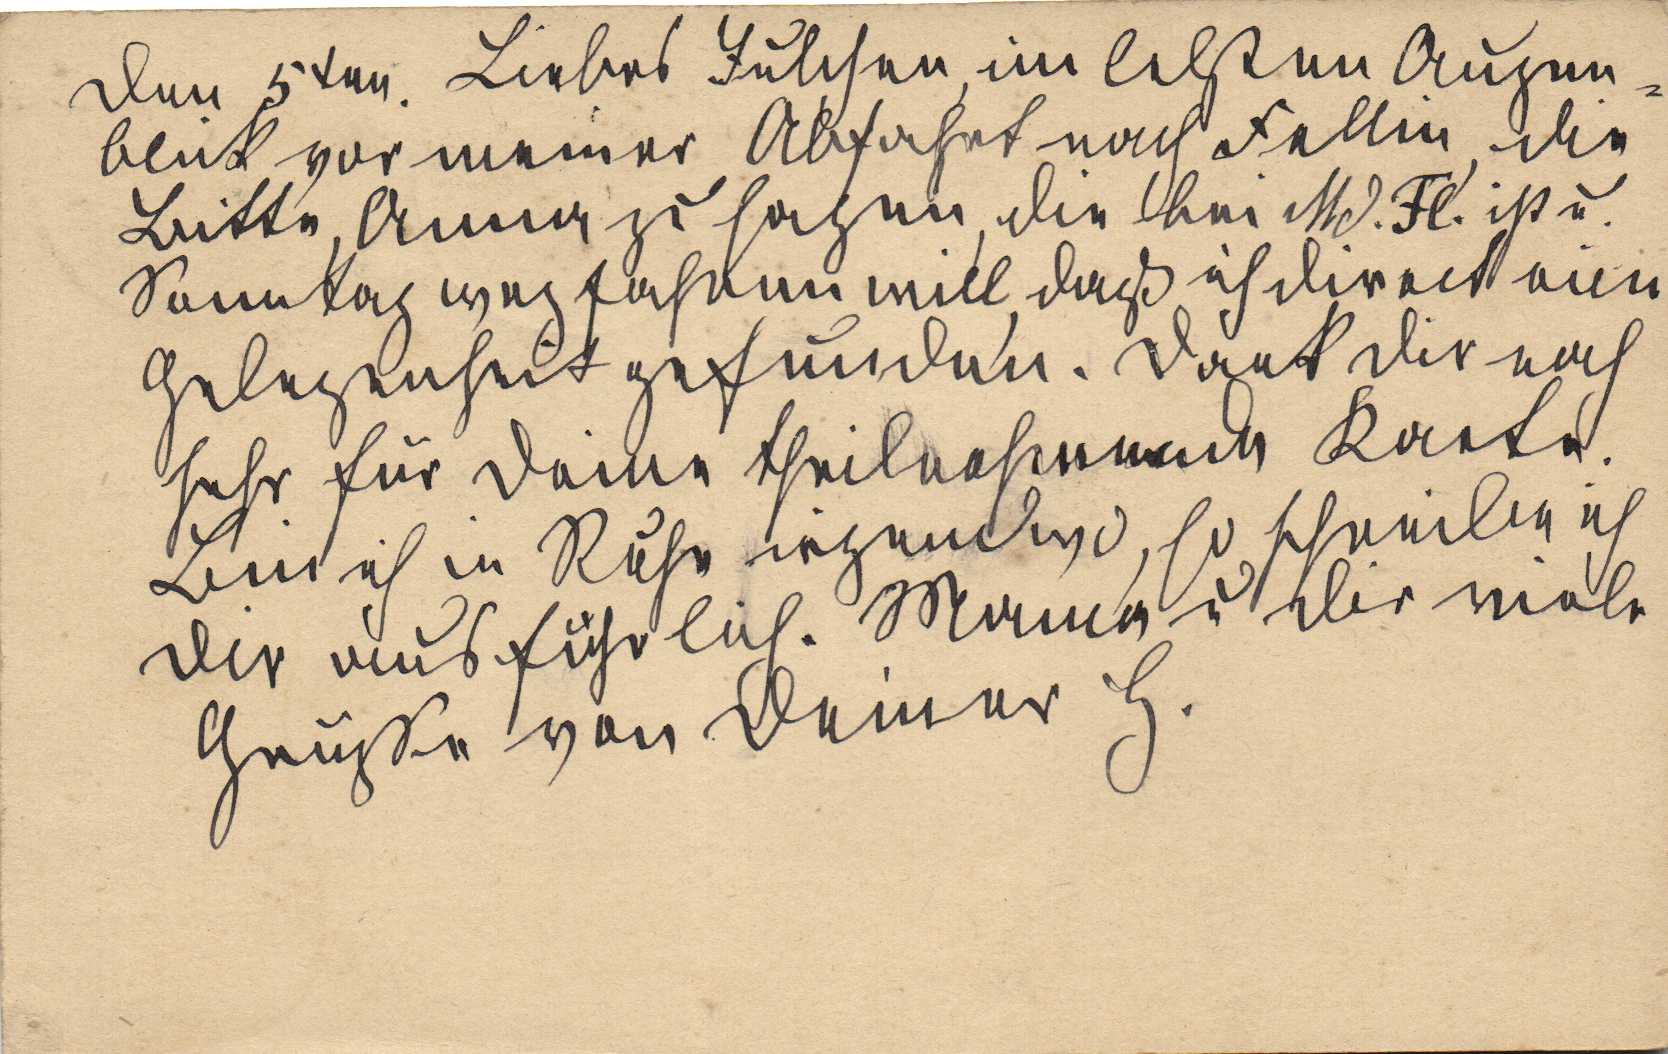 Den 5ten. Liebes Julchen, im letzten Augen=
blick vor meiner Abfahrt nach Fellin, die
Bitte, Anna zu sagen, die bei Md. Fl. ist u.
Sonntag wegfahren will, daß ich direct ein
Gelegenheit gefunden. Dank Dir noch
sehr für Deine theilnehmende Karte.
Bin ich in Ruhe irgendwo, so schreibe ich
Dir ausführlich. Mama u Dir viele
Grüsse von Deiner H.